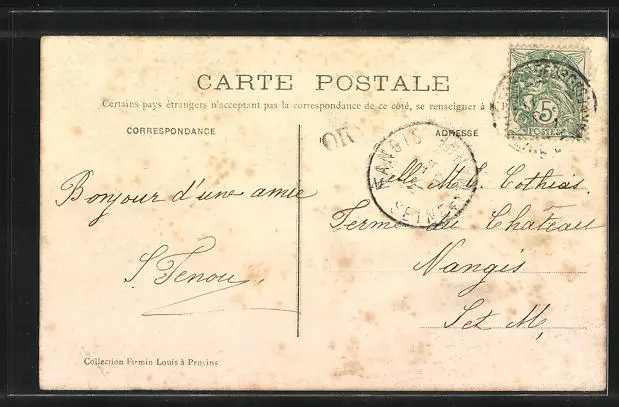 CARTE POSTALE
Certains pays étrangers n'acceptent pas la correspondance de ce côté, se renseigner à
CORRESPONDANCE
ADRESSE
OR
NANGIS
SEINE
5c
POSTES
Bonjour d'une amie
S. Tenou
elle M. L. Cothias
Ferme du Château
Nangis
Set M.
Collection Firmin Louis à Provins